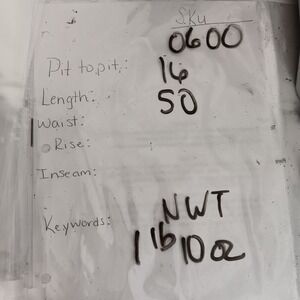 SKU
0600
Pit to pit: 16
Length: 50
Waist:
Rise:
Inseam:
Keywords: NWT
1 lb 10 oz